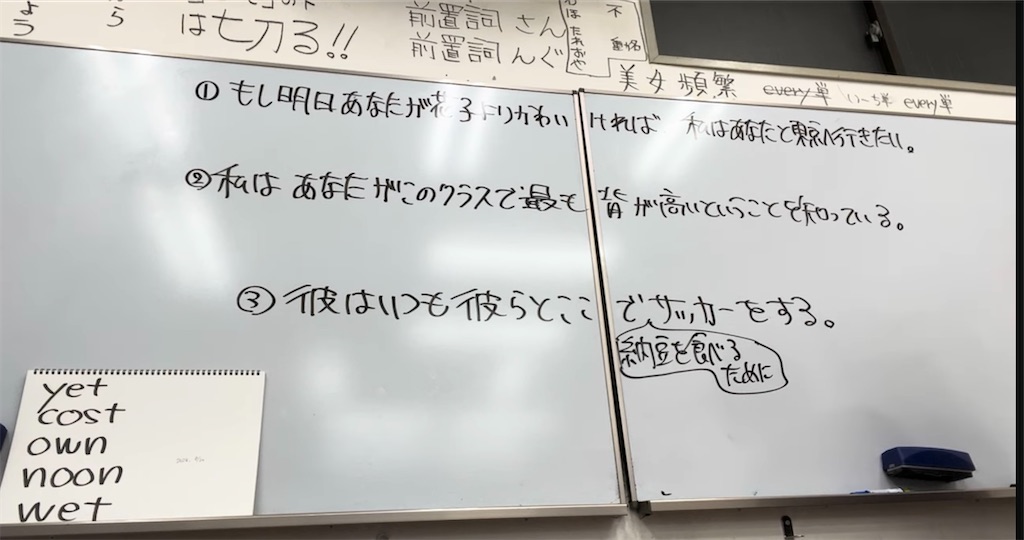 よう
ら
は七刀る!!
前置詞 さん
前置詞 んぐ
不
美女頻繁 every単 いーち単 every単
① もし明日あなたが花子よりかわいければ 私はあなたと東京へ行きたい。
② 私は あなたがこのクラスで最も背が高いということを知っている。
③ 彼はいつも彼らとここでサッカーをする。
納豆を食べる
ために
yet
cost
own
noon
wet